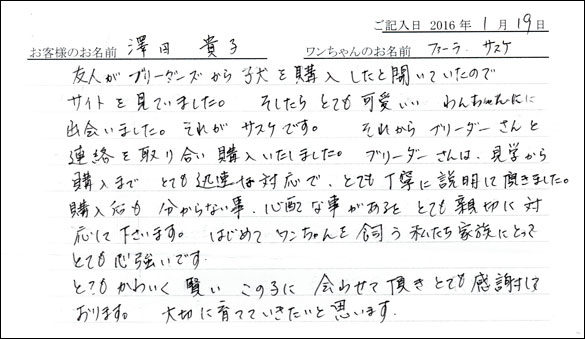 ご記入日 2016 年 1 月 19 日
お客様のお名前 澤田 貴子 ワンちゃんのお名前 ファーラ. サスケ
友人がブリーダーズから子犬を購入したと聞いていたので
サイトを見ていました。 そしたらとても可愛いい わんちゃんに
出会いました。それがサスケです。 それからブリーダーさんと
連絡を取り合い購入いたしました。 ブリーダーさんは、見学から
購入まで とても迅速な対応で、とても丁寧に説明して頂きました。
購入后も 分からない事、心配な事があると とても親切に対
応して下さいます。 はじめてワンちゃんを飼う私たち家族にとって
とても心強いです.
とてもかわいく 賢い この子に 会わせて頂きとても感謝して
おります。 大切に育てていきたいと思います.